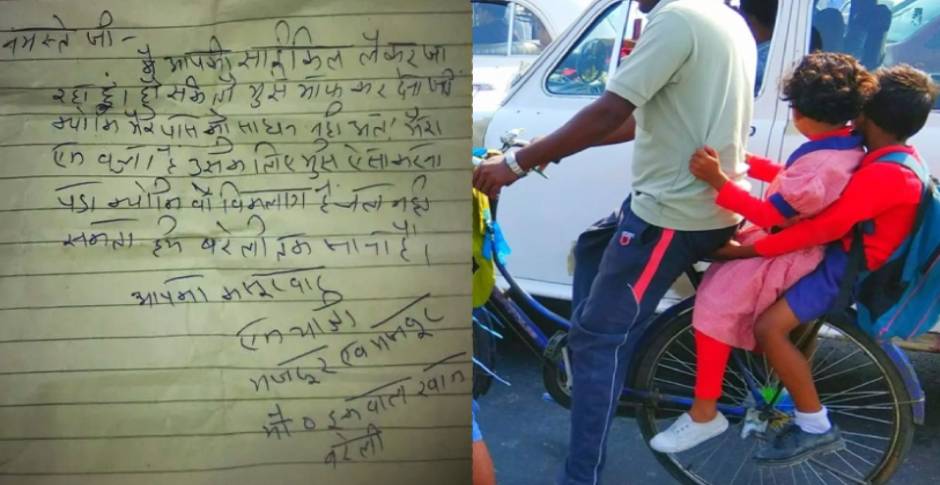 नमस्ते जी -
मै आपकी साईकिल लेकर जा
रहा हूं। हो सके तो मुझे माफ कर देना जी
क्योकि मेरे पास कोई साधन नही है मेरा
एक बच्चा है उसके लिए मुझे ऐसा करना
पडा क्योकि वो विकलांग है चल नही
सकता हमें बरेली तक जाना है।
आपका कसूरवार
एक यात्री
मजदूर एवं मजबूर
मो० इकबाल खान
बरेली